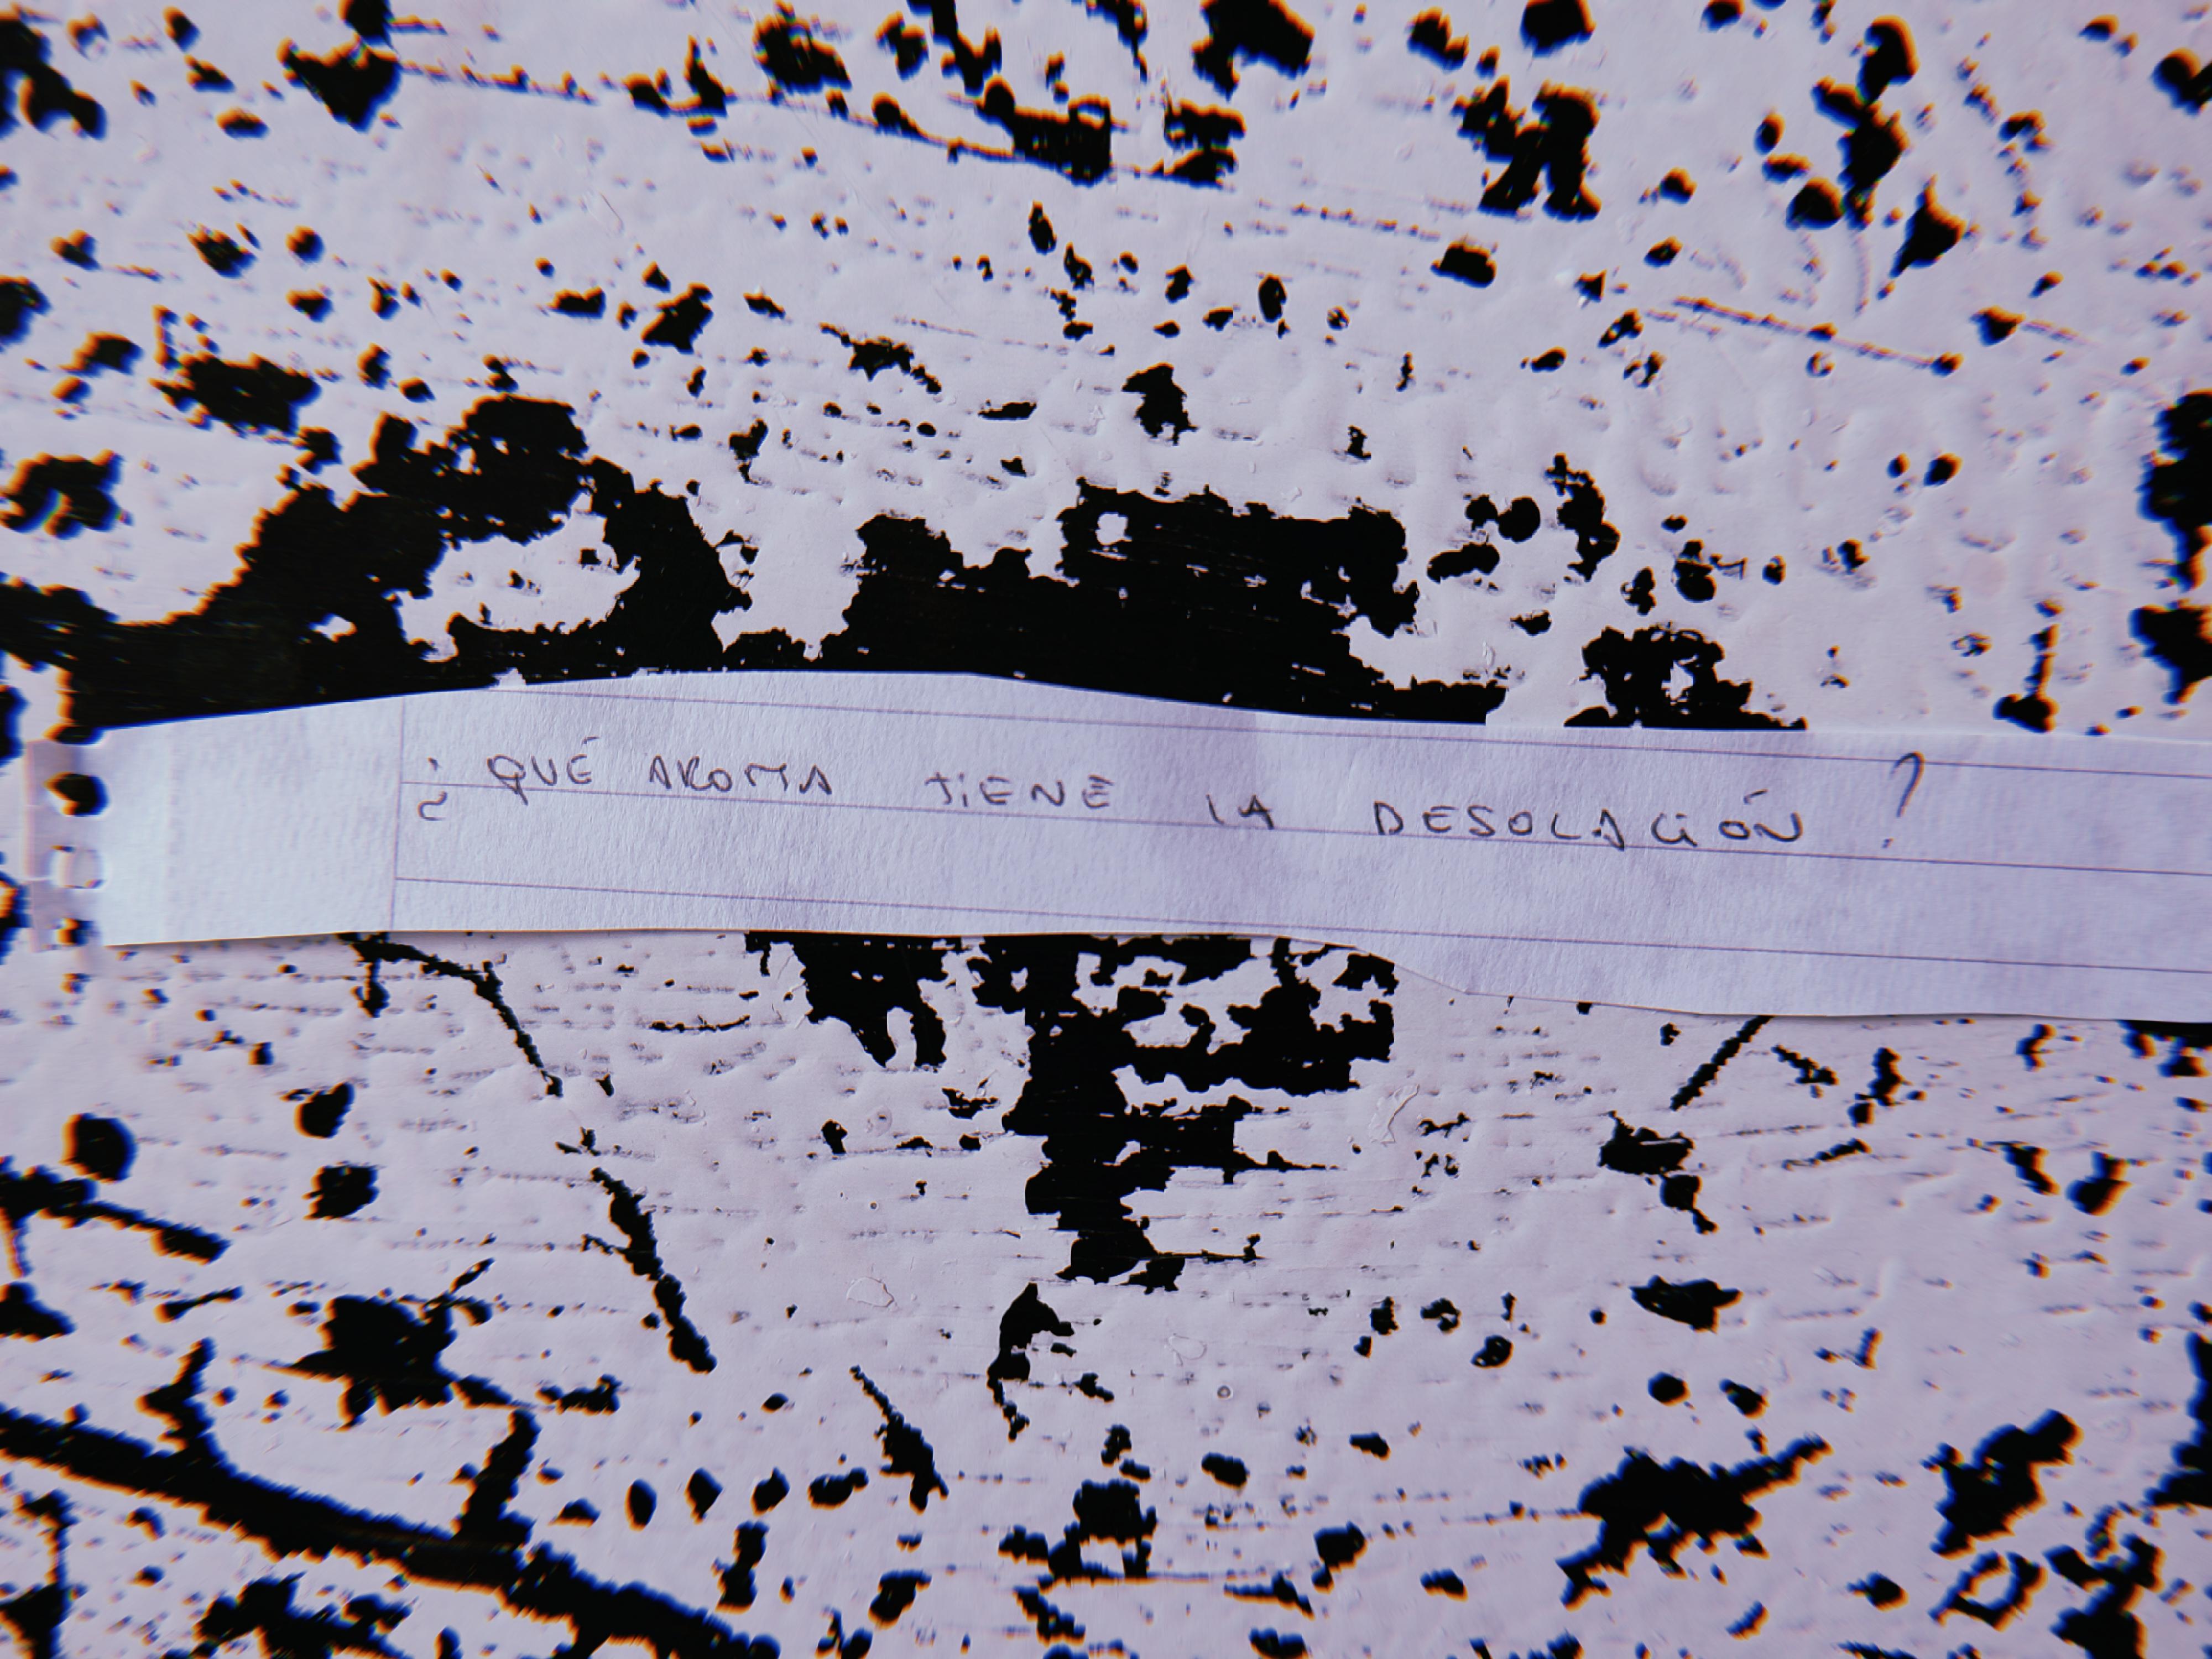 ¿QUÉ AROMA TIENE LA DESOLACIÓN?